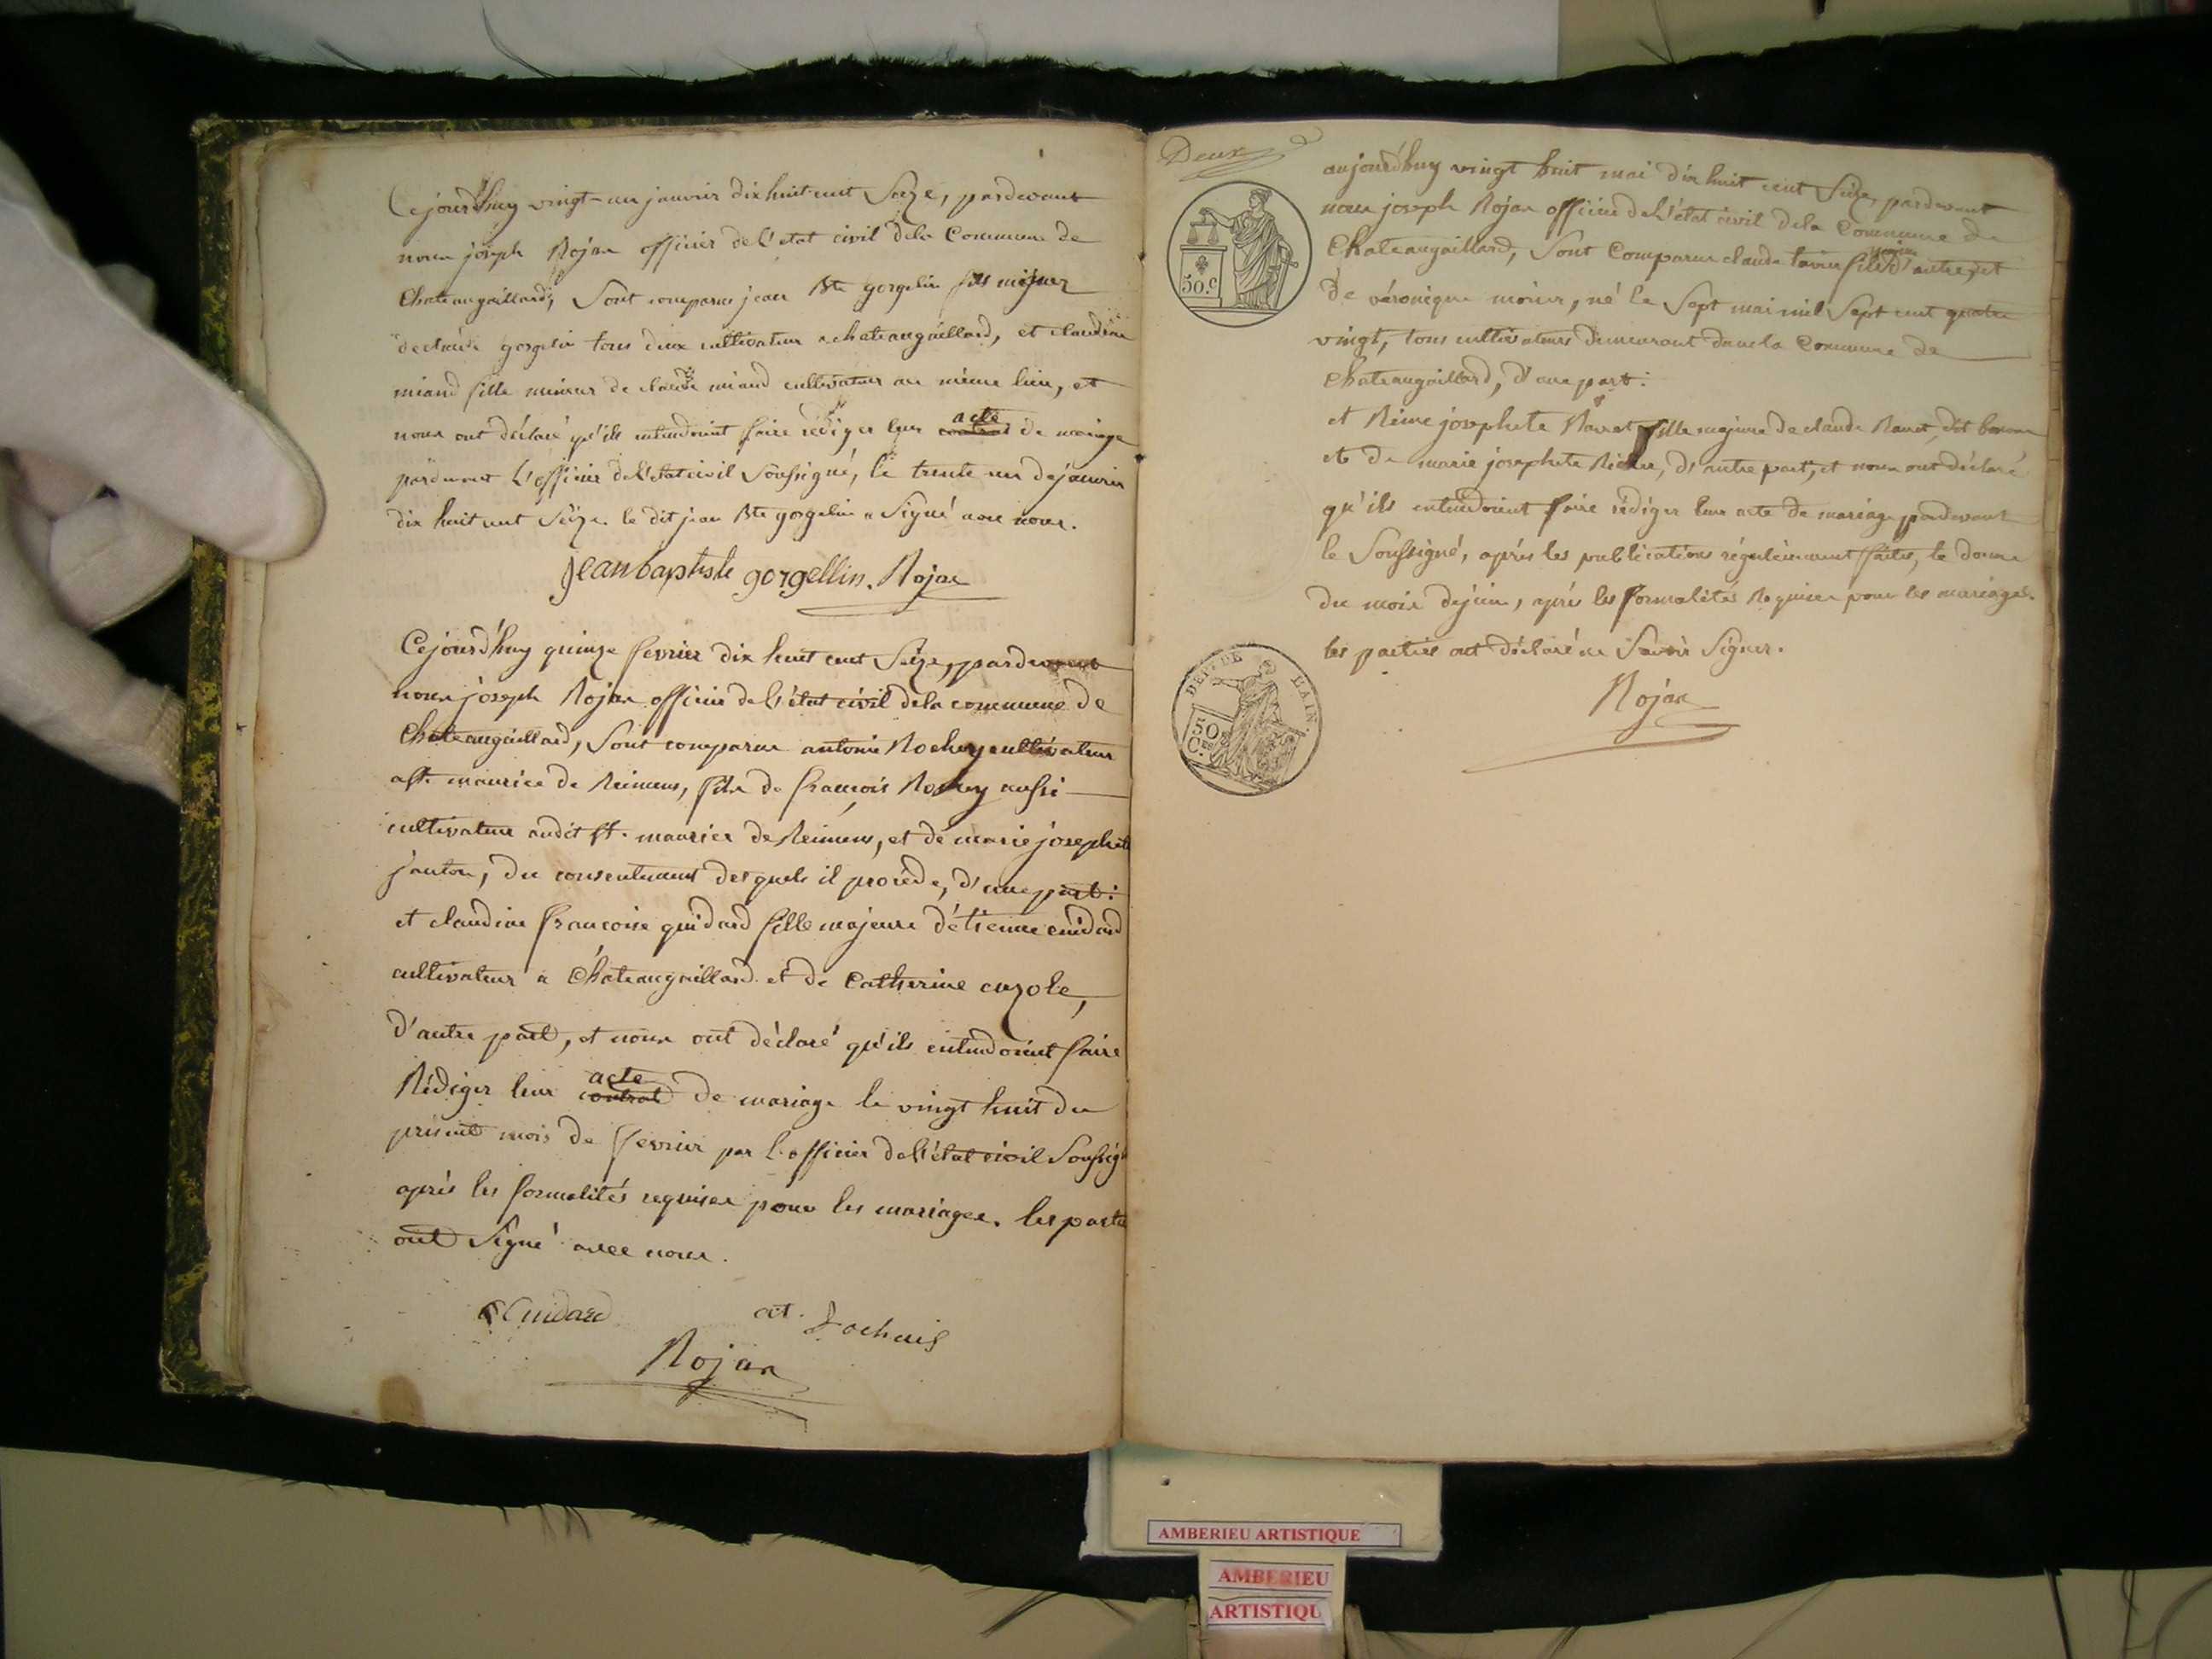 Cejourd'huy vingt-un janvier dix huit cent Seize, pardevant
nous joseph Rojan officier de l'etat civil dela Commune de
Chateaugaillard, Sont comparus jean Bte gorgelin fils majeur
declaude gorgelin tous deux cultivateur a chateaugaillard, et claudine
miand fille mineur de claude miand cultivateur au même lieu, et
nous ont déclaré qu'ils entendoient faire rédiger leur contrat acte de mariage
pardevant l'officier del'etat civil Soussigné, le trente un dejanvier
dix huit cent Seize. le dit jean Bte gorgelin a Signé avec nous.
jeanbaptiste gorgellin. Rojan
Cejourd'huy quinze fevrier dix huit cent Seize, pardevant
nous joseph Rojan officier del'état civil dela commune de
Chateaugaillard, Sont comparus antoine Rochey cultivateur
a St. maurice de Reimens, fils de françois Rochey aussi
cultivateur audit St. maurice de Reimens, et de marie josephete
janton, du consentement desquels il procède, d'une part:
et claudine françoise guidard fille majeure d'étienne cuidard
cultivateur a Chateaugaillard et de Catherine cuzole,
d'autre part, et nous ont déclaré qu'ils entendoient faire
Rédiger leur contrat acte de mariage le vingt huit du
présent mois de fevrier par l'officier del'état civil Soussigé
après les formalités requises pour les mariages. les partie
ont Signé avec nous.
Cuidard ant. Rochais
Rojan
Deux
aujourd'huy vingt huit mai dix huit cent Seize, pardevant
nous joseph Rojan officier del'état civil dela Commune de
Chateaugaillard, Sont Comparus claude fils majeur d'autre, et
de véronique, né le Sept mai mil Sept cent quatre
vingt, tous cultivateurs demeurant dans la Commune de
Chateaugaillard, d'une part:
et Reine josephete Ravet fille majeure de claude Ravet, dit
et de marie josephete, d'autre part, et nous ont déclaré
qu'ils entendoient faire rédiger leur acte de mariage pardevant
le Soussigné, après les publications régulièrement faites, le douze
du mois dejuin, après les formalités Requises pour les mariages.
les parties ont déclaré ne Savoir Signer.
Rojan
50.C
DEPT. DE L'AIN.
50
C.
AMBERIEU ARTISTIQUE
AMBERIEU
ARTISTIQU